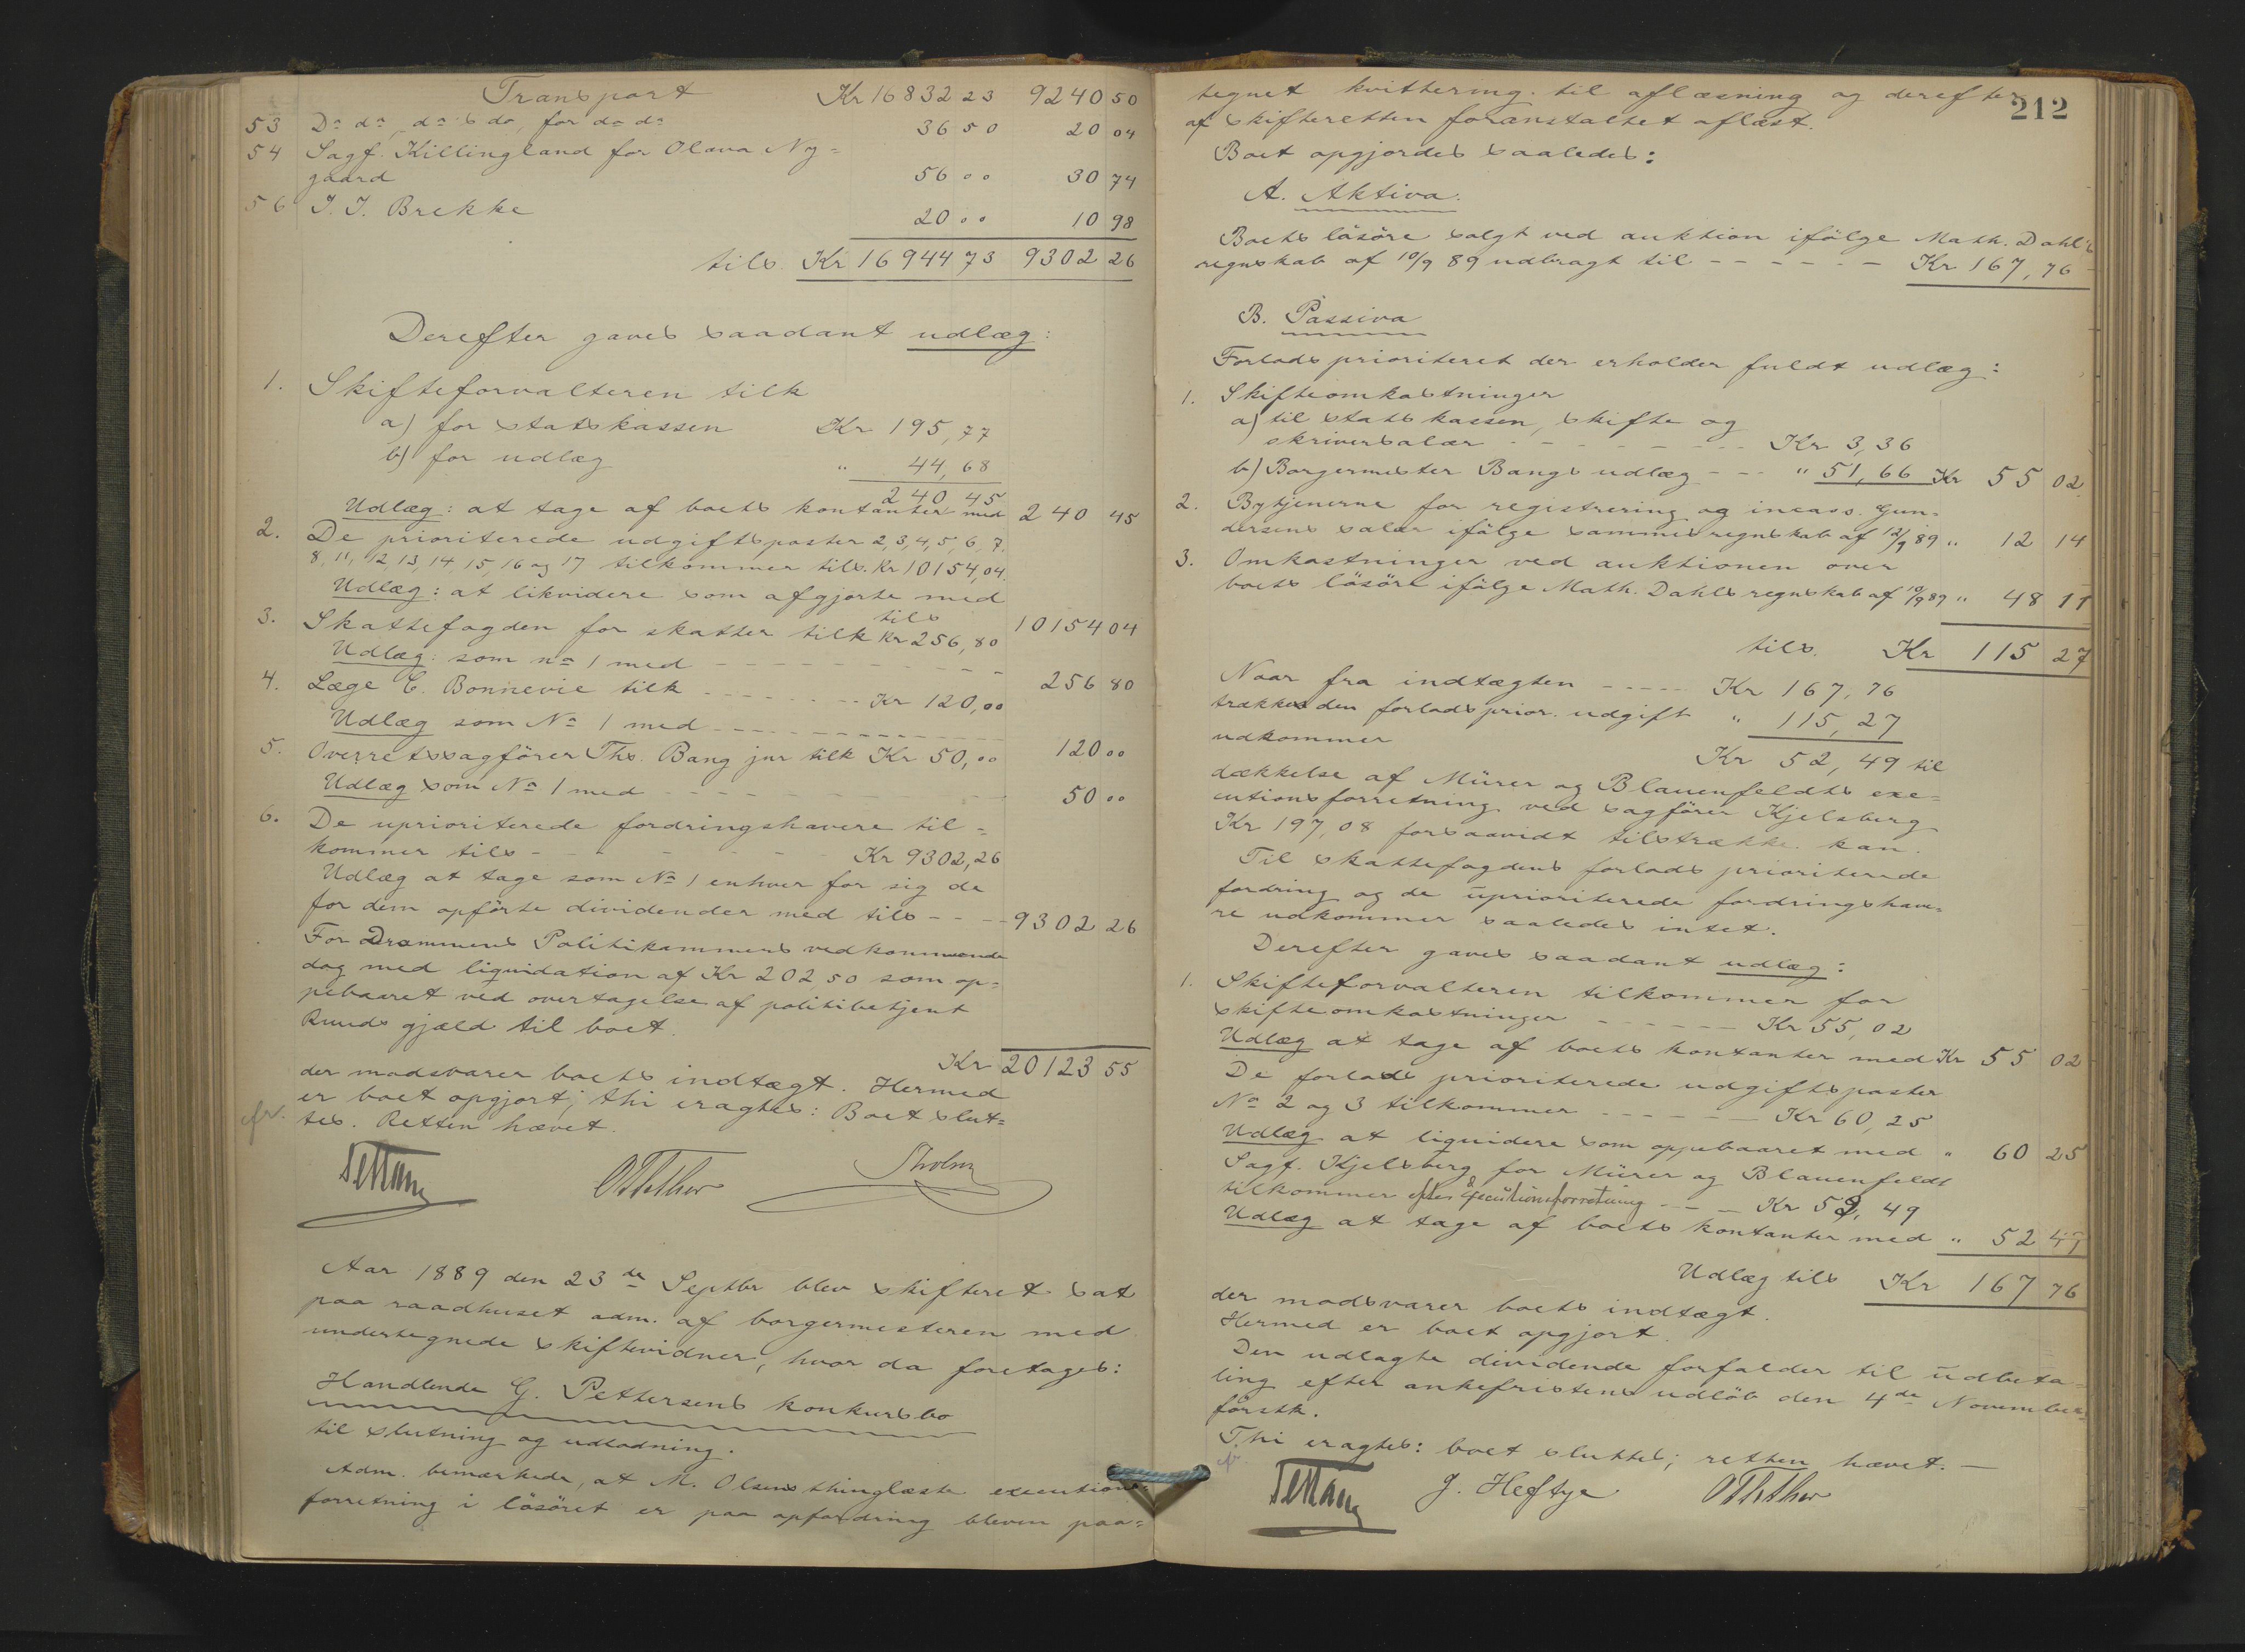 Transport Kr 16832 23 9240 50
53 Do do, do's do, for do do 36 50 20 04
54 Sagf. Killingland for Olava Ny=
gaard 56 00 30 74
56 J. J. Brekke 20 00 10 98
tils. Kr 16944 73 9302 26
Derefter gaves saadant udlæg:
1. Skifteforvalteren tilk
a) for statskassen Kr 195,77
b) for udlæg " 44,68
240 45
Udlæg: at tage af boets kontanter med 240 45
2. De prioriterede udgiftsposter 2, 3, 4, 5, 6, 7,
8, 11, 12, 13, 14, 15, 16 og 17 tilkommer tils. Kr 10154,04.
Udlæg: at likvidere som afgjorte med
tils 10154 04
3. Skattefogden for skatter tilk Kr 256,80
Udlæg: som no 1 med - - - 256 80
4. Læge C. Bonnevie tilk - - - Kr 120,00
Udlæg som No 1 med - - - 120 00
5. Overretssagfører Ths. Bang jur tilk Kr 50,00
Udlæg som No 1 med - - - 50 00
6. De uprioriterede fordringshavere til=
kommer tils - - - Kr 9302,26
Udlæg at tage som No 1 enhver for sig de
for dem opførte dividender med tils - - - 9302 26
For Drammens Politikammers vedkommende
dog med liquidation af Kr 202,50 som op=
pebaaret ved overtagelse af politibetjent
Ruuds gjæld til boet.
Kr 20123 55
der modsvarer boets indtægt. Hermed
er boet opgjort; thi eragtes: Boet slut=
tes. Retten hævet.
Aar 1889 den 23de Septbr blev skifteret sat
paa raadhuset adm. af borgermesteren med
undertegnede skiftevidner, hvor da foretages:
Handlende G. Pettersens konkursbo
til slutning og udlodning.
Adm. bemærkede, at M. Olsens thinglæste executions=
forretning i løsøret er paa opfordring bleven paa=
212
tegnet kvittering til aflæsning og derefter
af skifteretten foranstaltet aflæst.
Boet opgjordes saaledes:
A. Aktiva.
Boets løsøre solgt ved auktion ifølge Math. Dahl's
regnskab af 10/9 89 udbragt til - - - Kr 167,76
B. Passiva
Forlods prioriteret der erholder fuldt udlæg:
1. Skifteomkostninger
a) til statskassen, skifte og
skriversalær - - - Kr 3,36
b) Borgermester Bangs udlæg - - " 51,66 Kr 55 02
2. Bytjenerne for registrering og incass. Gun=
dersens salær ifølge sammes regnskab af 12/9 89 " 12 14
3. Omkostninger ved auktionen over
boets løsøre ifølge Math. Dahls regnskab af 10/9 89 " 48 11
tils. Kr 115 27
Naar fra indtægten - - - Kr 167,76
trækkes den forlods prior. udgift " 115,27
udkommer Kr 52,49 til
dækkelse af Mürer og Blauenfeldts exe=
cutionsforretning ved sagfører Kjelsberg
Kr 197,08 forsaavidt tilstrække kan.
Til skattefogdens forlods prioriterede
fordring og de uprioriterede fordringshave=
re udkommer saaledes intet.
Derefter gaves saadant udlæg:
1. Skifteforvalteren tilkommer for
skifteomkostninger - - - Kr 55,02
Udlæg at tage af boets kontanter med Kr 55 02
De forlods prioriterede udgiftsposter
No 2 og 3 tilkommer - - - Kr 60,25
Udlæg at liquidere som oppebaaret med " 60 25
Sagf. Kjelsberg for Mürer og Blauenfeldt
tilkommer efter Executionsforretning - - - Kr 52,49
Udlæg at tage af boets kontanter med " 52 49
Udlæg tils Kr 167 76
der modsvarer boets indtægt.
Hermed er boet opgjort.
Den udlagte dividende forfalder til udbeta=
ling efter ankefristens udløb den 4de November
førstk.
Thi eragtes: boet sluttes; retten hævet. —
J. Heftye